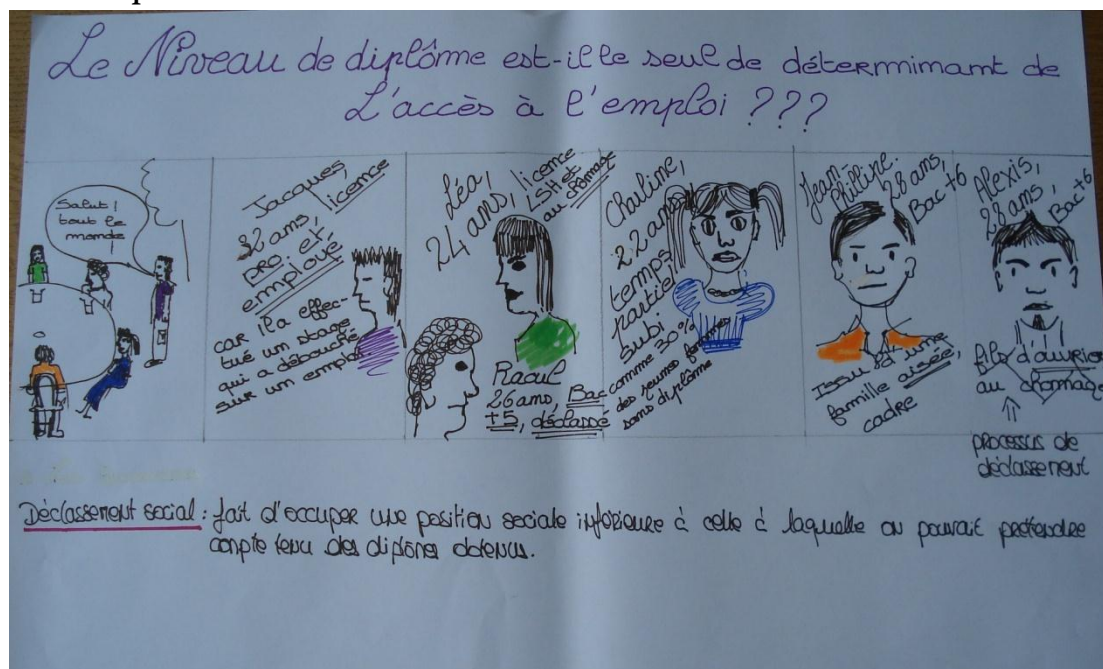 Le Niveau de diplôme est-il le seul de détermimamt de
L'accès à l'emploi ???
Salut !
tout le
monde
Jacques,
32 ans, licence
pro et
employé
car il a effec-
tué un stage
qui a débouché
sur un emploi.
Léa,
24 ans, licence
LSH et
au chômage
Raoul
26 ans, Bac
+5, déclassé
22 ans,
temps
partiel
subi
comme 30%
des jeunes femmes
sans diplôme
Jean
Philippe.
28 ans,
Bac +6
Issu d'une
famille aisée,
cadre
Alexis,
28 ans,
Bac +6
fils d'ouvrier
au chomage
⇑
processus de
déclassement
Déclassement social : fait d'occuper une position sociale inférieure à celle à laquelle on pouvait prétendre
compte tenu des diplômes obtenus.